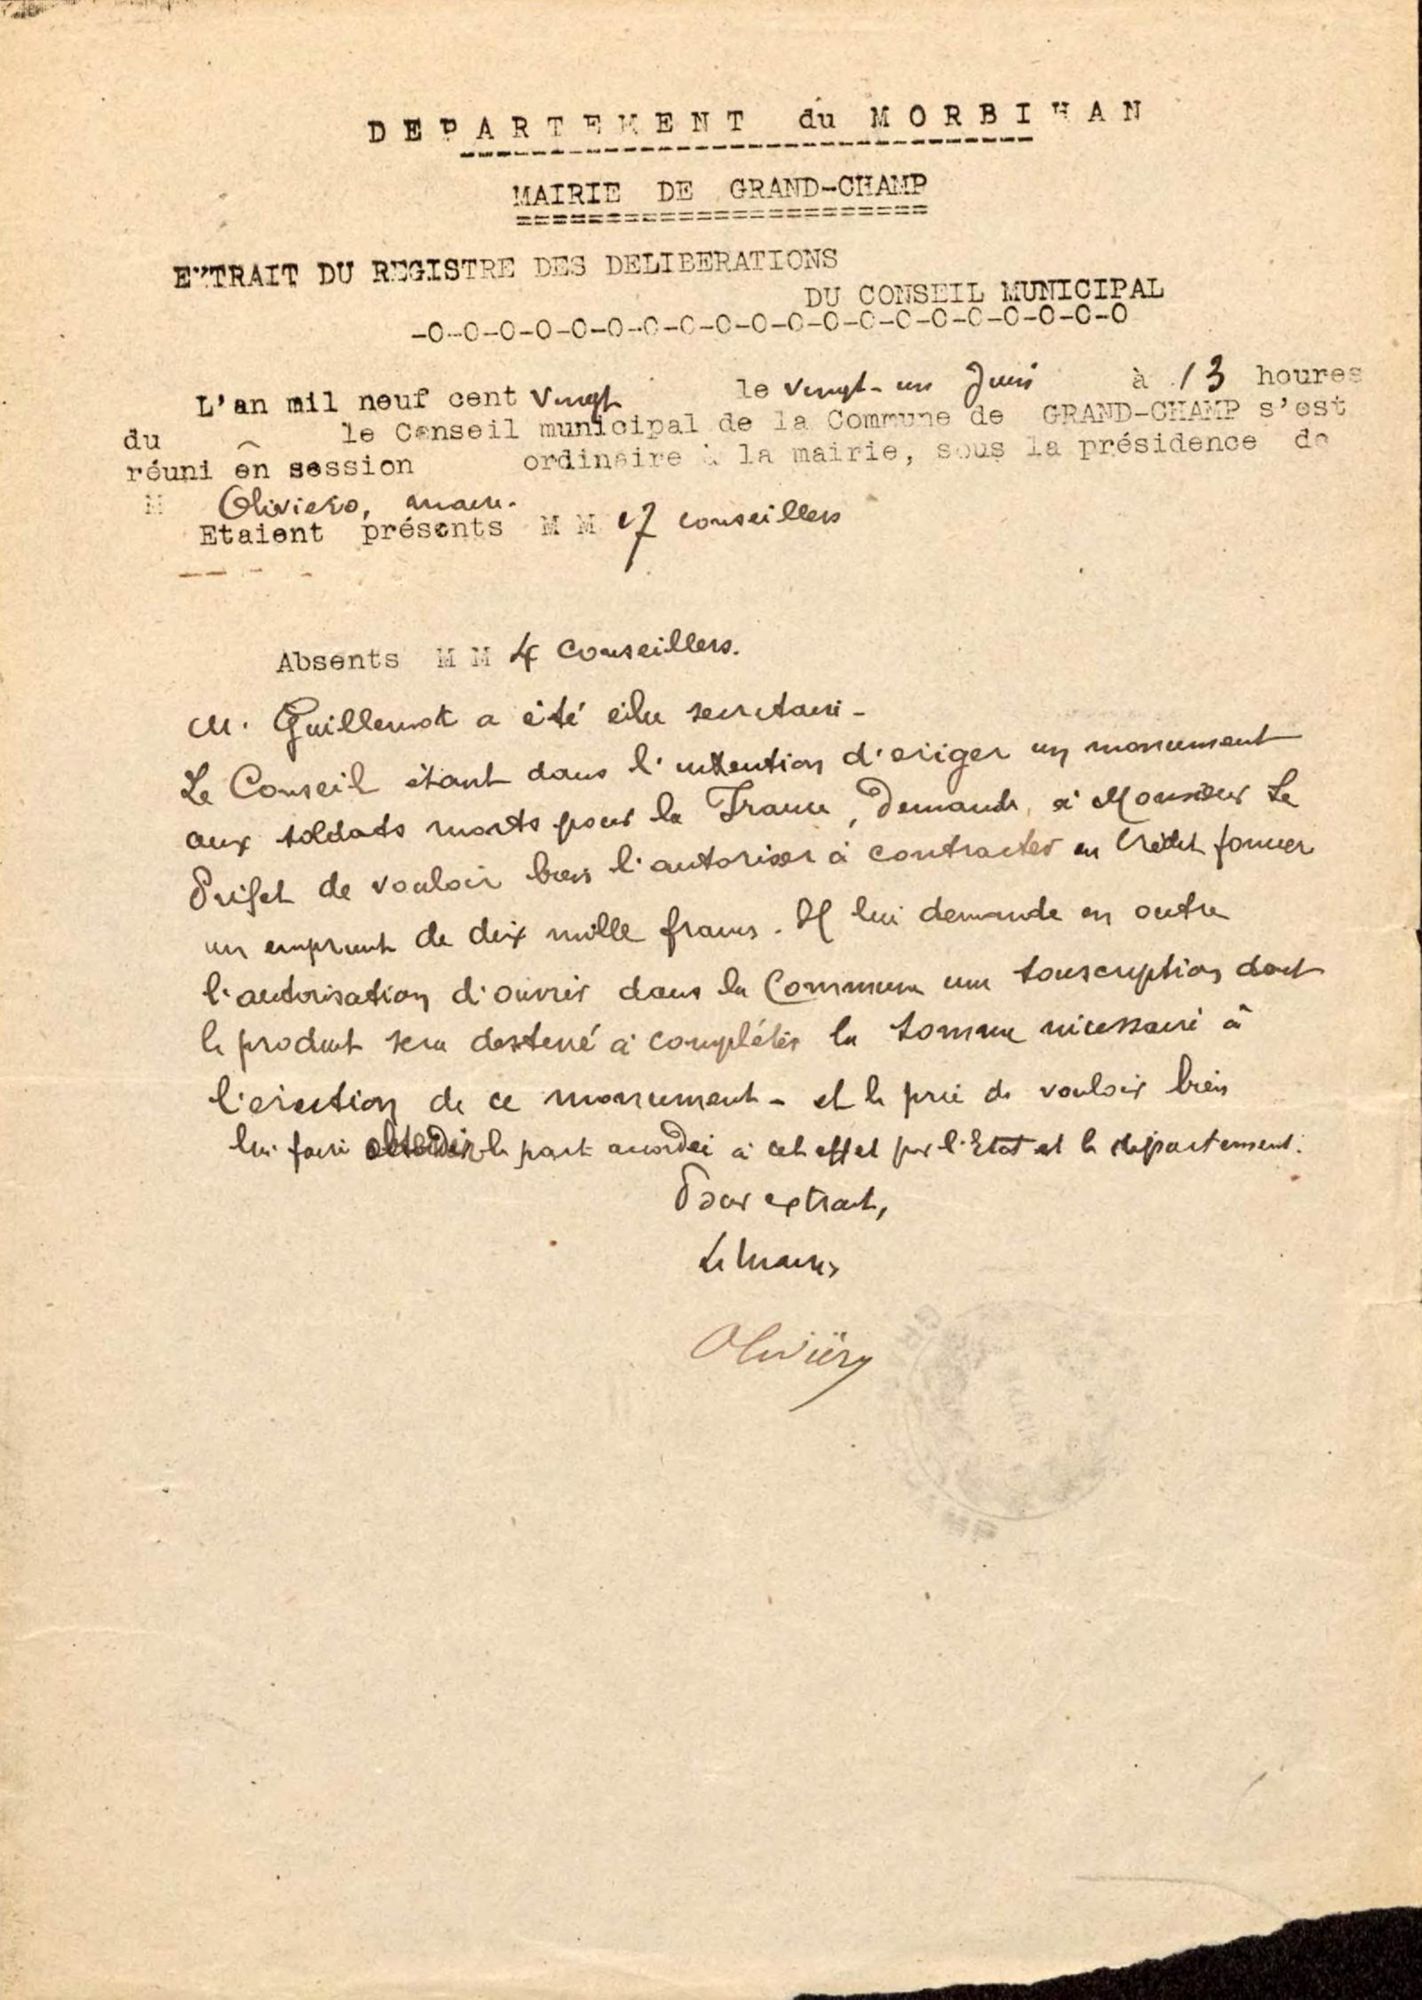 DEPARTEMENT du MORBIHAN
MAIRIE DE GRAND-CHAMP
EXTRAIT DU REGISTRE DES DELIBERATIONS
DU CONSEIL MUNICIPAL
-O-O-O-O-O-O-O-O-O-O-O-O-O-O-O-O-O-O-O-O
L'an mil neuf cent Vingt le vingt-un Juin à 13 heures
du le Conseil municipal de la Commune de GRAND-CHAMP s'est
réuni en session ordinaire à la mairie, sous la présidence de
M Oliviero, maire.
Etaient présents M M 17 conseillers
Absents M M 4 Conseillers.
M. Guillemot a été élu secrétaire -
Le Conseil étant dans l'intention d'ériger un monument
aux soldats morts pour la France, demande à Monsieur Le
Préfet de vouloir bien l'autoriser à contracter au Crédit foncier
un emprunt de dix mille francs. Il lui demande en outre
l'autorisation d'ouvrir dans la Commune une souscription dont
le produit sera destiné à compléter la somme nécessaire à
l'érection de ce monument - et le prie de vouloir bien
lui faire obtenir la part accordée à cet effet par l'Etat et le département.
Pour extrait,
Le Maire,
Oliviero
MAIRIE